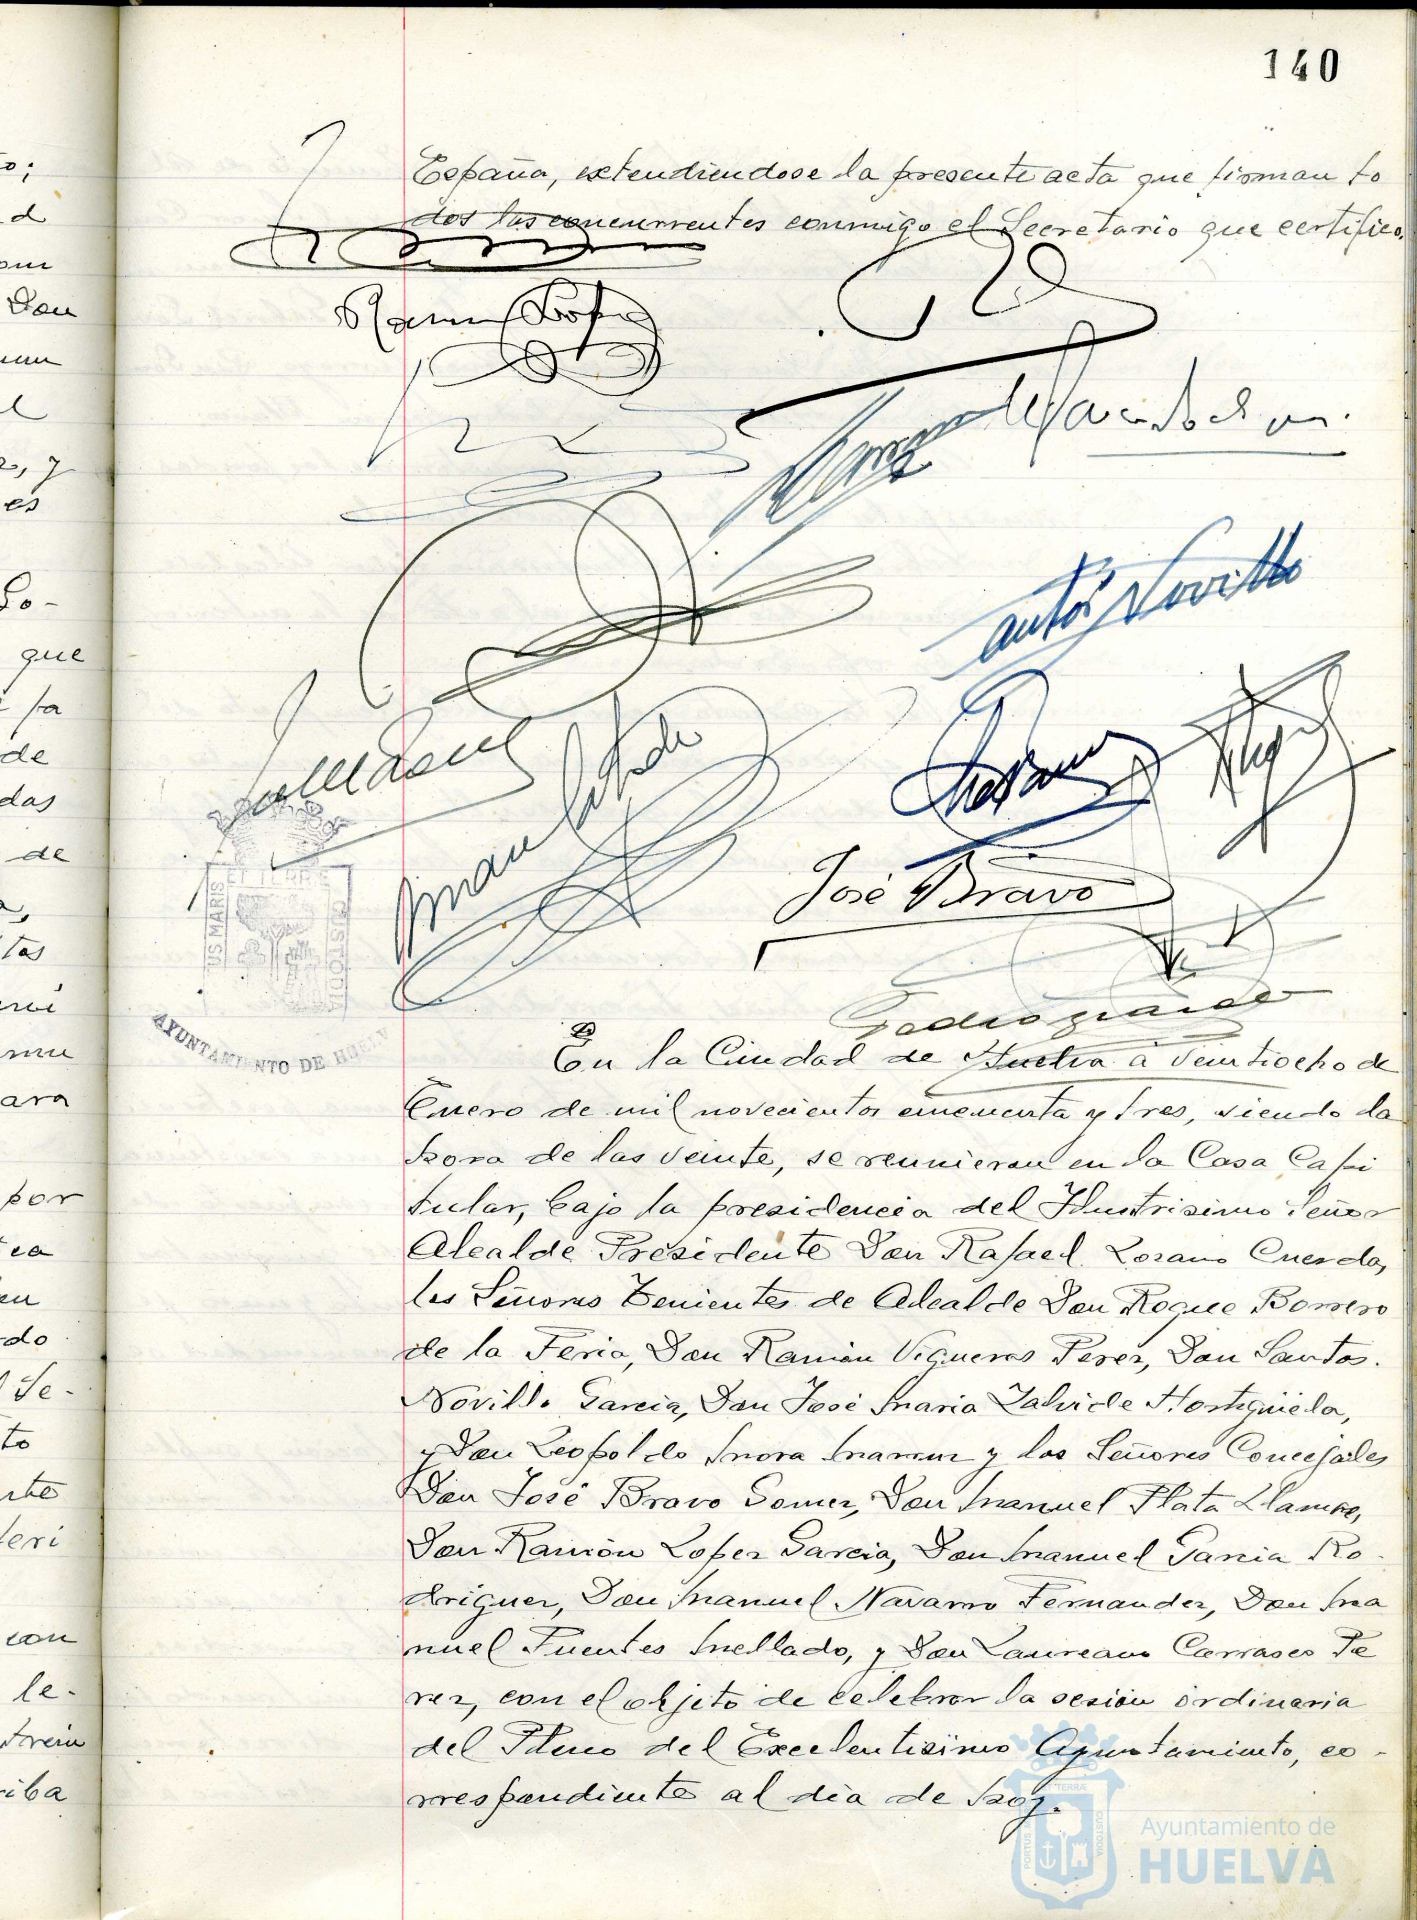 140
España, extendiendose la presente acta que firman to
dos los concurrentes conmigo el Secretario que certifico.
Ramon Lopez
Santos Novillo
José Bravo
US MARIS
ET TERRE
CUSTODIA
AYUNTAMIENTO DE HUELV
En la Ciudad de Huelva a veintiocho de
Enero de mil novecientos cincuenta y tres, siendo la
hora de las veinte, se reunieron en la Casa Capi
tular, bajo la presidencia del Ilustrisimo Señor
Alcalde Presidente Don Rafael Lozano Cuerda,
los Señores Tenientes de Alcalde Don Roque Borrero
de la Feria, Don Ramón Vigueras Perez, Don Santos
Novillo Garcia, Don José Maria Zalvide Hortigüela,
y Don Leopoldo Mora y los Señores Concejales
Don José Bravo Gomez, Don Manuel Plata
Don Ramón Lopez Garcia, Don Manuel Garcia Ro-
driguez, Don Manuel Navarro Fernandez, Don Ma
nuel Fuentes Mellado, y Don Laureano Carrasco Pe
rez, con el objeto de celebrar la sesión ordinaria
del Pleno del Excelentisimo Ayuntamiento, co-
rrespondiente al dia de hoy.
Ayuntamiento de
HUELVA